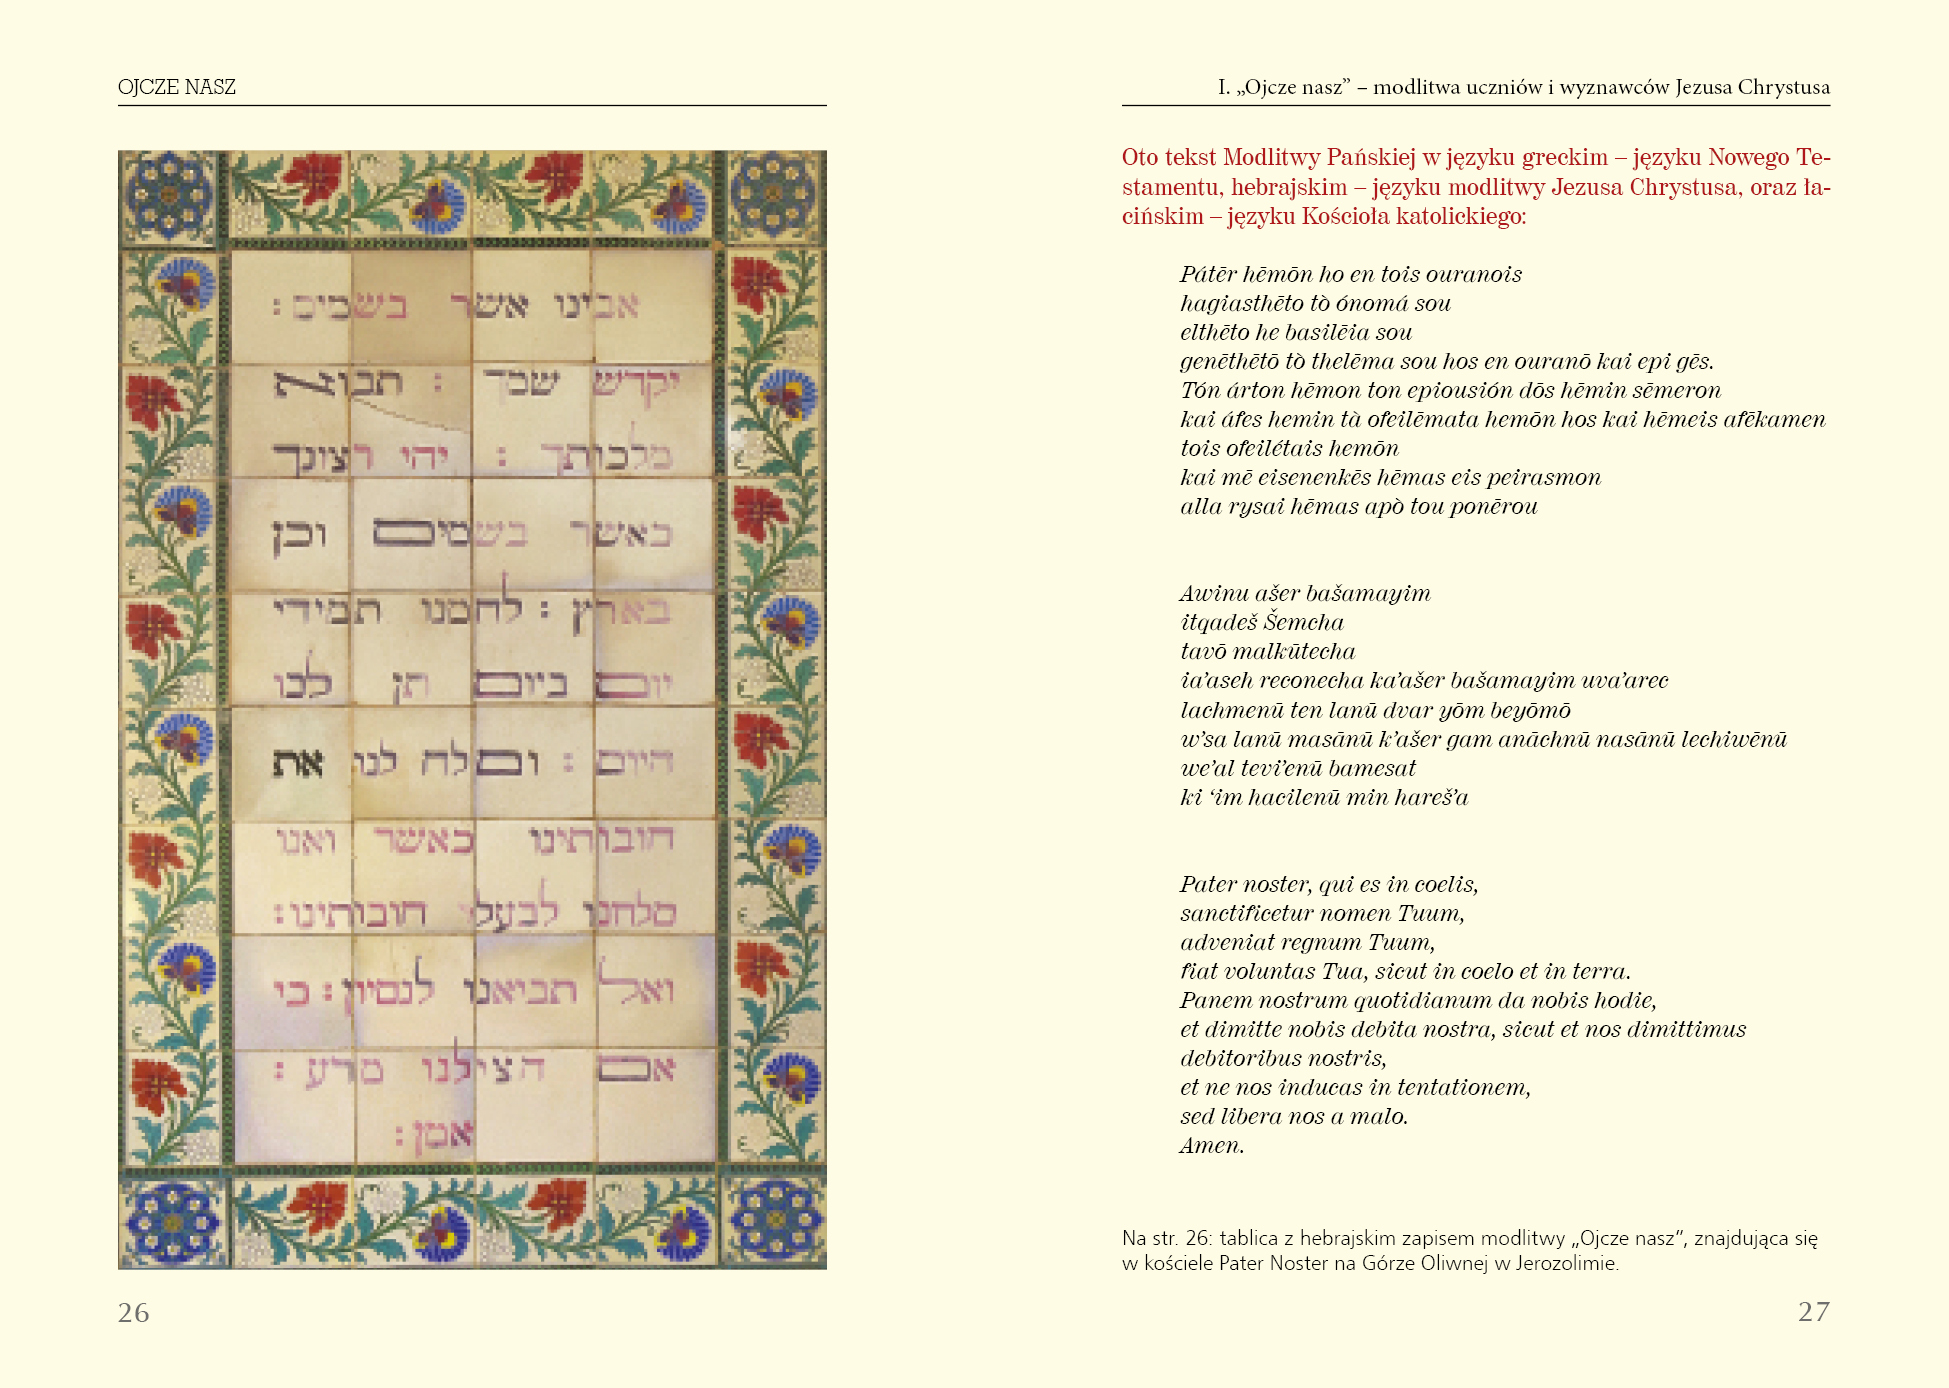 OJCZE NASZ
אבינו אשר בשמים :
יקדש שמך : תבוא
מלכותך : יהי רצונך
כאשר בשמים וכן
בארץ : לחמנו תמידי
יום ביום תן לנו
היום : וסלח לנו את
חובותינו כאשר ואנו
סלחנו לבעלי חובותינו :
ואל תביאנו לנסיון : כי
אם הצילנו מרע :
אמן :
26
I. „Ojcze nasz” – modlitwa uczniów i wyznawców Jezusa Chrystusa
Oto tekst Modlitwy Pańskiej w języku greckim – języku Nowego Te-
stamentu, hebrajskim – języku modlitwy Jezusa Chrystusa, oraz ła-
cińskim – języku Kościoła katolickiego:
Pátēr hēmōn ho en tois ouranois
hagiasthēto tò ónomá sou
elthēto he basilēia sou
genēthētō tò thelēma sou hos en ouranō kai epi gēs.
Tón árton hēmon ton epiousión dōs hēmin sēmeron
kai áfes hemin tà ofeilēmata hemōn hos kai hēmeis afēkamen
tois ofeilétais hemōn
kai mē eisenenkēs hēmas eis peirasmon
alla rysai hēmas apò tou ponērou
Awinu ašer bašamayim
itqadeš Šemcha
tavō malkūtecha
ia’aseh reconecha ka’ašer bašamayim uva’arec
lachmenū ten lanū dvar yōm beyōmō
w’sa lanū masānū k’ašer gam anāchnū nasānū lechiwēnū
we’al tevi’enū bamesat
ki ‘im hacilenū min hareš’a
Pater noster, qui es in coelis,
sanctificetur nomen Tuum,
adveniat regnum Tuum,
fiat voluntas Tua, sicut in coelo et in terra.
Panem nostrum quotidianum da nobis hodie,
et dimitte nobis debita nostra, sicut et nos dimittimus
debitoribus nostris,
et ne nos inducas in tentationem,
sed libera nos a malo.
Amen.
Na str. 26: tablica z hebrajskim zapisem modlitwy „Ojcze nasz”, znajdująca się
w kościele Pater Noster na Górze Oliwnej w Jerozolimie.
27